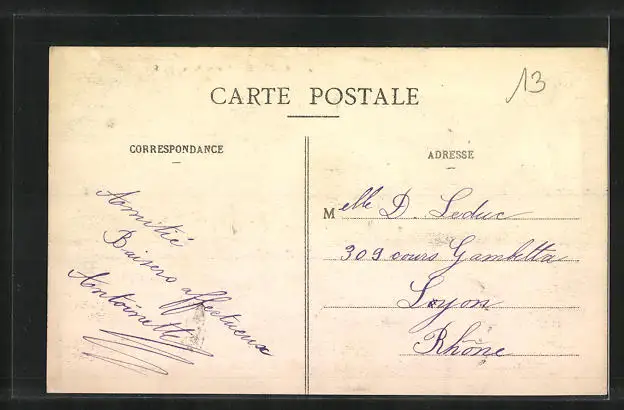 13
CARTE POSTALE
CORRESPONDANCE
Amitié
Baisers affectueux
Antoinette
ADRESSE
Melle D. Leduc
309 cours Gambetta
Lyon
Rhône